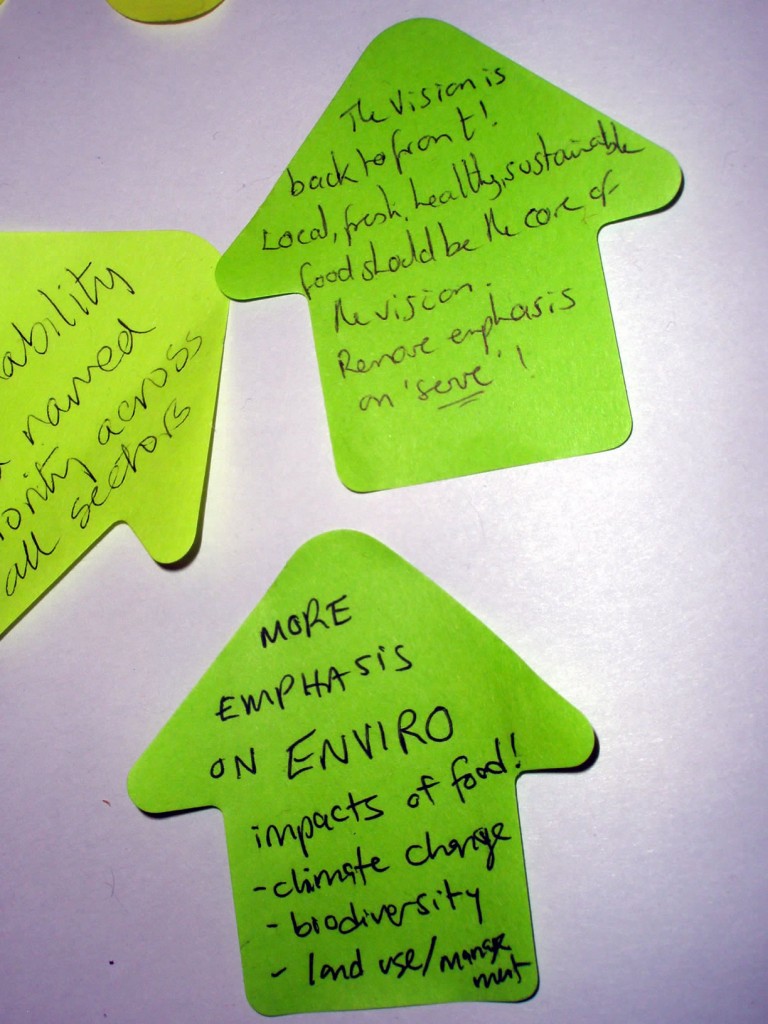 The Vision is
back to front!
Local, fresh, healthy, sustainable
food should be the core of
the vision.
Remove emphasis
on 'serve'!
ability
named
ority across
all sectors
MORE
EMPHASIS
ON ENVIRO
impacts of food!
- climate change
- biodiversity
- land use/manage
ment